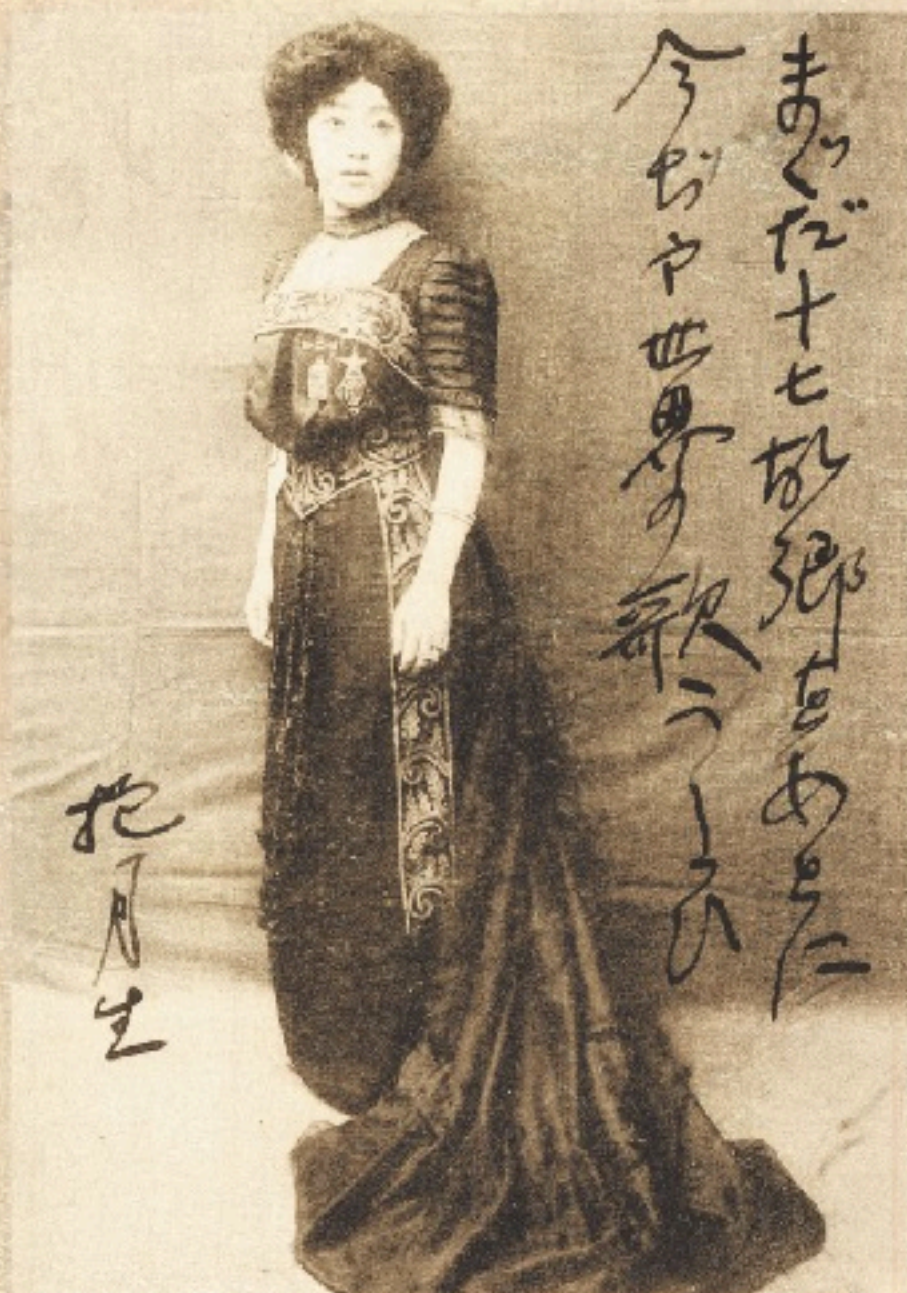 まぐだ十七故郷をあとに
今ぢや世界の歌うたひ
抱月生